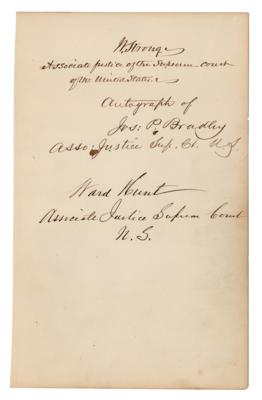 W. Strong
Associate justice of the Supreme court
of the United States
Autograph of
Jos: P. Bradley
Asso: Justice Sup. Ct. U.S.
Ward Hunt
Associate Justice Suprem Court
U.S.